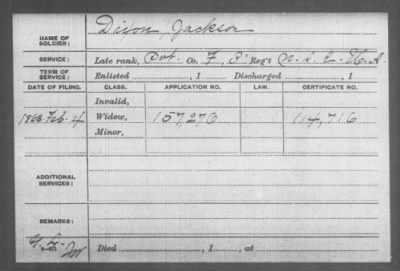 NAME OF SOLDIER: Dixon, Jackson
SERVICE: Late rank, Pvt. Co. F, 3" Reg't
TERM OF SERVICE: Enlisted , 1 Discharged , 1
DATE OF FILING. CLASS. APPLICATION NO. LAW. CERTIFICATE NO.
Invalid,
1868 Feb. 4 Widow, 157,270 114,716
Minor,
ADDITIONAL SERVICES:
REMARKS:
Died , 1 , at